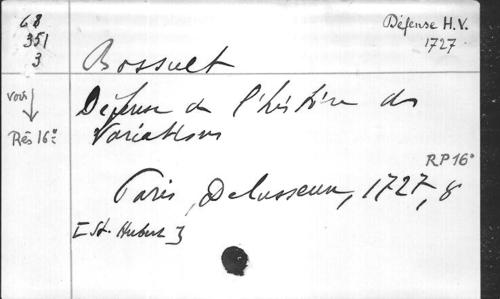 68
351
3
Défense H.V.
1727
Bossuet
voir
Rés 16°
Défense de l'histoire des
Variations
RP16°
Paris, Delusseux, 1727, 8
[St. Hubert]